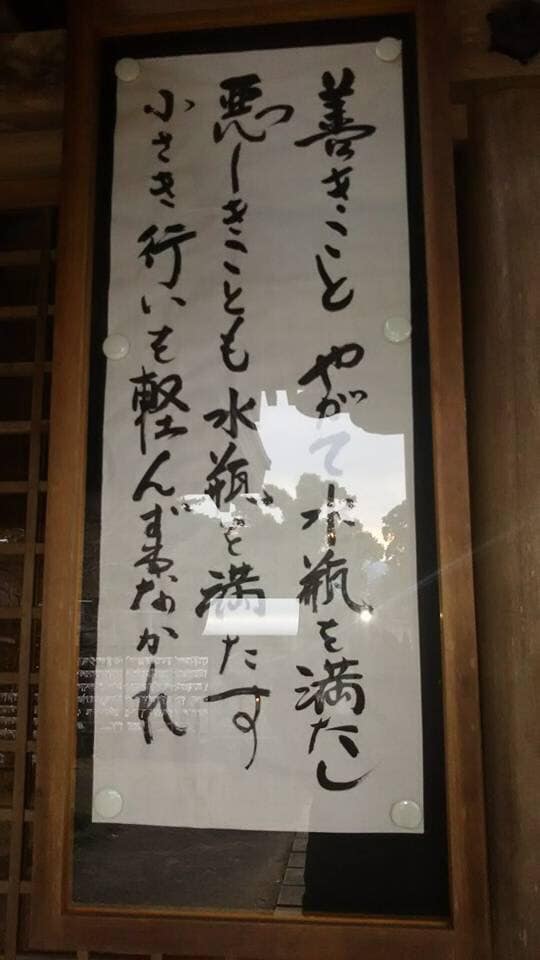 善きこと やがて水瓶を満たし
悪しきことも水瓶を満たす
小さき行いを軽んずるなかれ